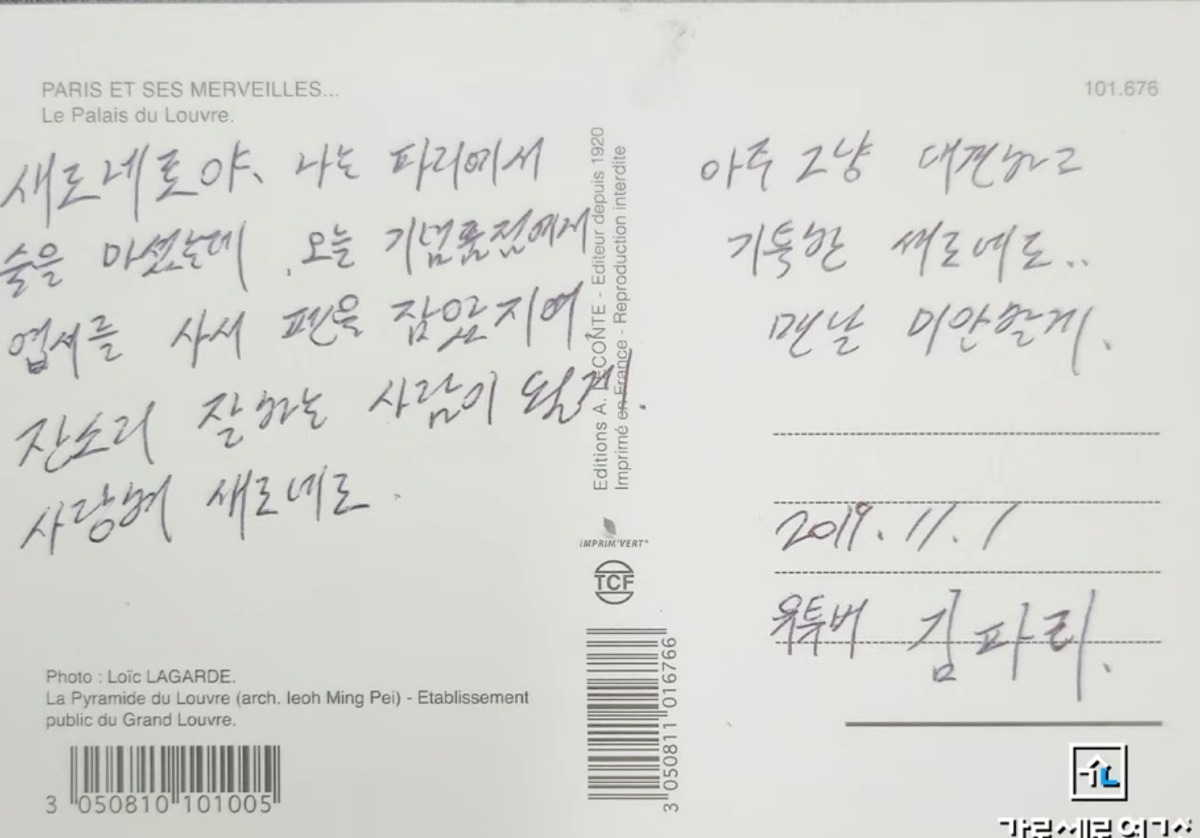 PARIS ET SES MERVEILLES...
Le Palais du Louvre.
101.676
새로네로야, 나는 파리에서
술을 마셨는데, 오늘 기념품점에게
엽서를 사서 펜을 잡았지여
잔소리 잘하는 사람이 될게.
사랑해 새로네로.
아주 그냥 대견하고
기특한 새로네로..
맨날 미안할게.
2019.11.1
유투버 김파리.
Editions A. LECONTE - Editeur depuis 1920
Imprimé en France - Reproduction interdite
IMPRIM'VERT®
TCF
3 050811 016766
Photo : Loïc LAGARDE.
La Pyramide du Louvre (arch. Ieoh Ming Pei) - Etablissement
public du Grand Louvre.
3 050810 101005
가로세로연구소